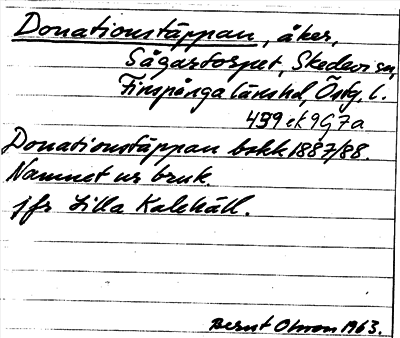 Donationstäppan, åker,
Sågartorpet, Skedevi sn,
Finspånga länshd, Östg. l.
439 ek 9G7a
Donationstäppan bokk 1887/88.
Namnet ur bruk.
jfr Lilla Kalehäll.
Bernt Olsson 1963.